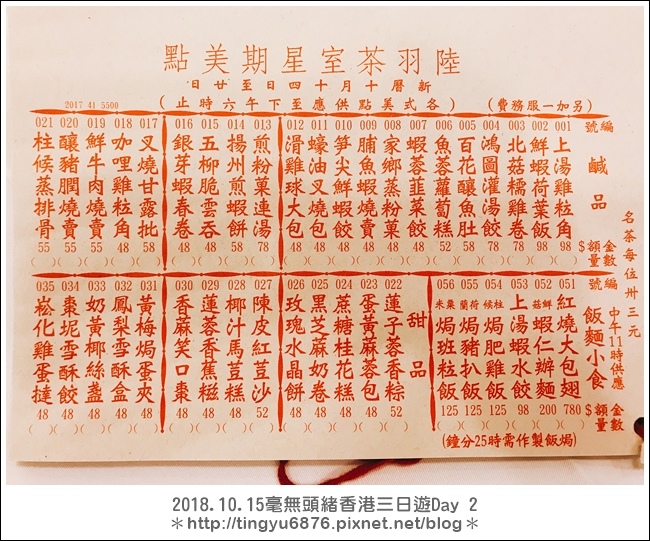 陸羽茶室星期美點
新曆十月十四日至廿日
(另加一服務費)
(各式美點供應至下午六時止)
2017 41 5500
名茶每位卅三元
編號 鹹品 金額 $ 數量
001 上湯雞粒角 98
002 鮮蝦荷葉飯 98
003 北菇糯雞卷 78
004 鴻圖灌湯餃 78
005 百花釀魚肚 58
006 魚蓉蘿蔔糕 48
007 蝦蓉 48
008 家鄉蒸粉菓 48
009 脯魚蝦燒賣 48
010 筍尖鮮蝦餃 48
011 蠔油叉燒包 48
012 滑雞球大包 48
013 煎粉菓連湯 78
014 揚州煎蝦餅 58
015 五柳脆雲吞 48
016 銀芽蝦春卷 48
017 叉燒甘露批 58
018 咖哩雞粒角 48
019 鮮牛肉燒賣 55
020 釀豬膶燒賣 55
021 柱侯蒸排骨 55
中午11時供應
編號 飯麵小食 金額 $ 數量
051 紅燒大包翅 780
052 鮮菇蝦仁辦麵 200
053 上湯蝦水餃 98
054 柱候焗肥雞飯 125
055 荷蘭焗豬扒飯 125
056 粟米焗班粒飯 125
(焗飯製作需時25分鐘)
甜品
022 蓮子蓉香粽 52
023 蛋黃麻蓉包 48
024 蔗糖桂花糕 48
025 黑芝蔴奶卷 48
026 玫瑰水晶餅 48
027 陳皮紅荳沙 52
028 椰汁馬荳糕 48
029 蓮蓉香蕉糍 48
030 香麻笑口棗 48
031 黃梅焗蛋夾 48
032 鳳梨雪酥盒 48
033 奶黃椰絲盞 48
034 棗坭雪酥餃 48
035 崧化雞蛋撻 48
2018.10.15毫無頭緒香港三日遊Day 2
＊http://tingyu6876.pixnet.net/blog＊